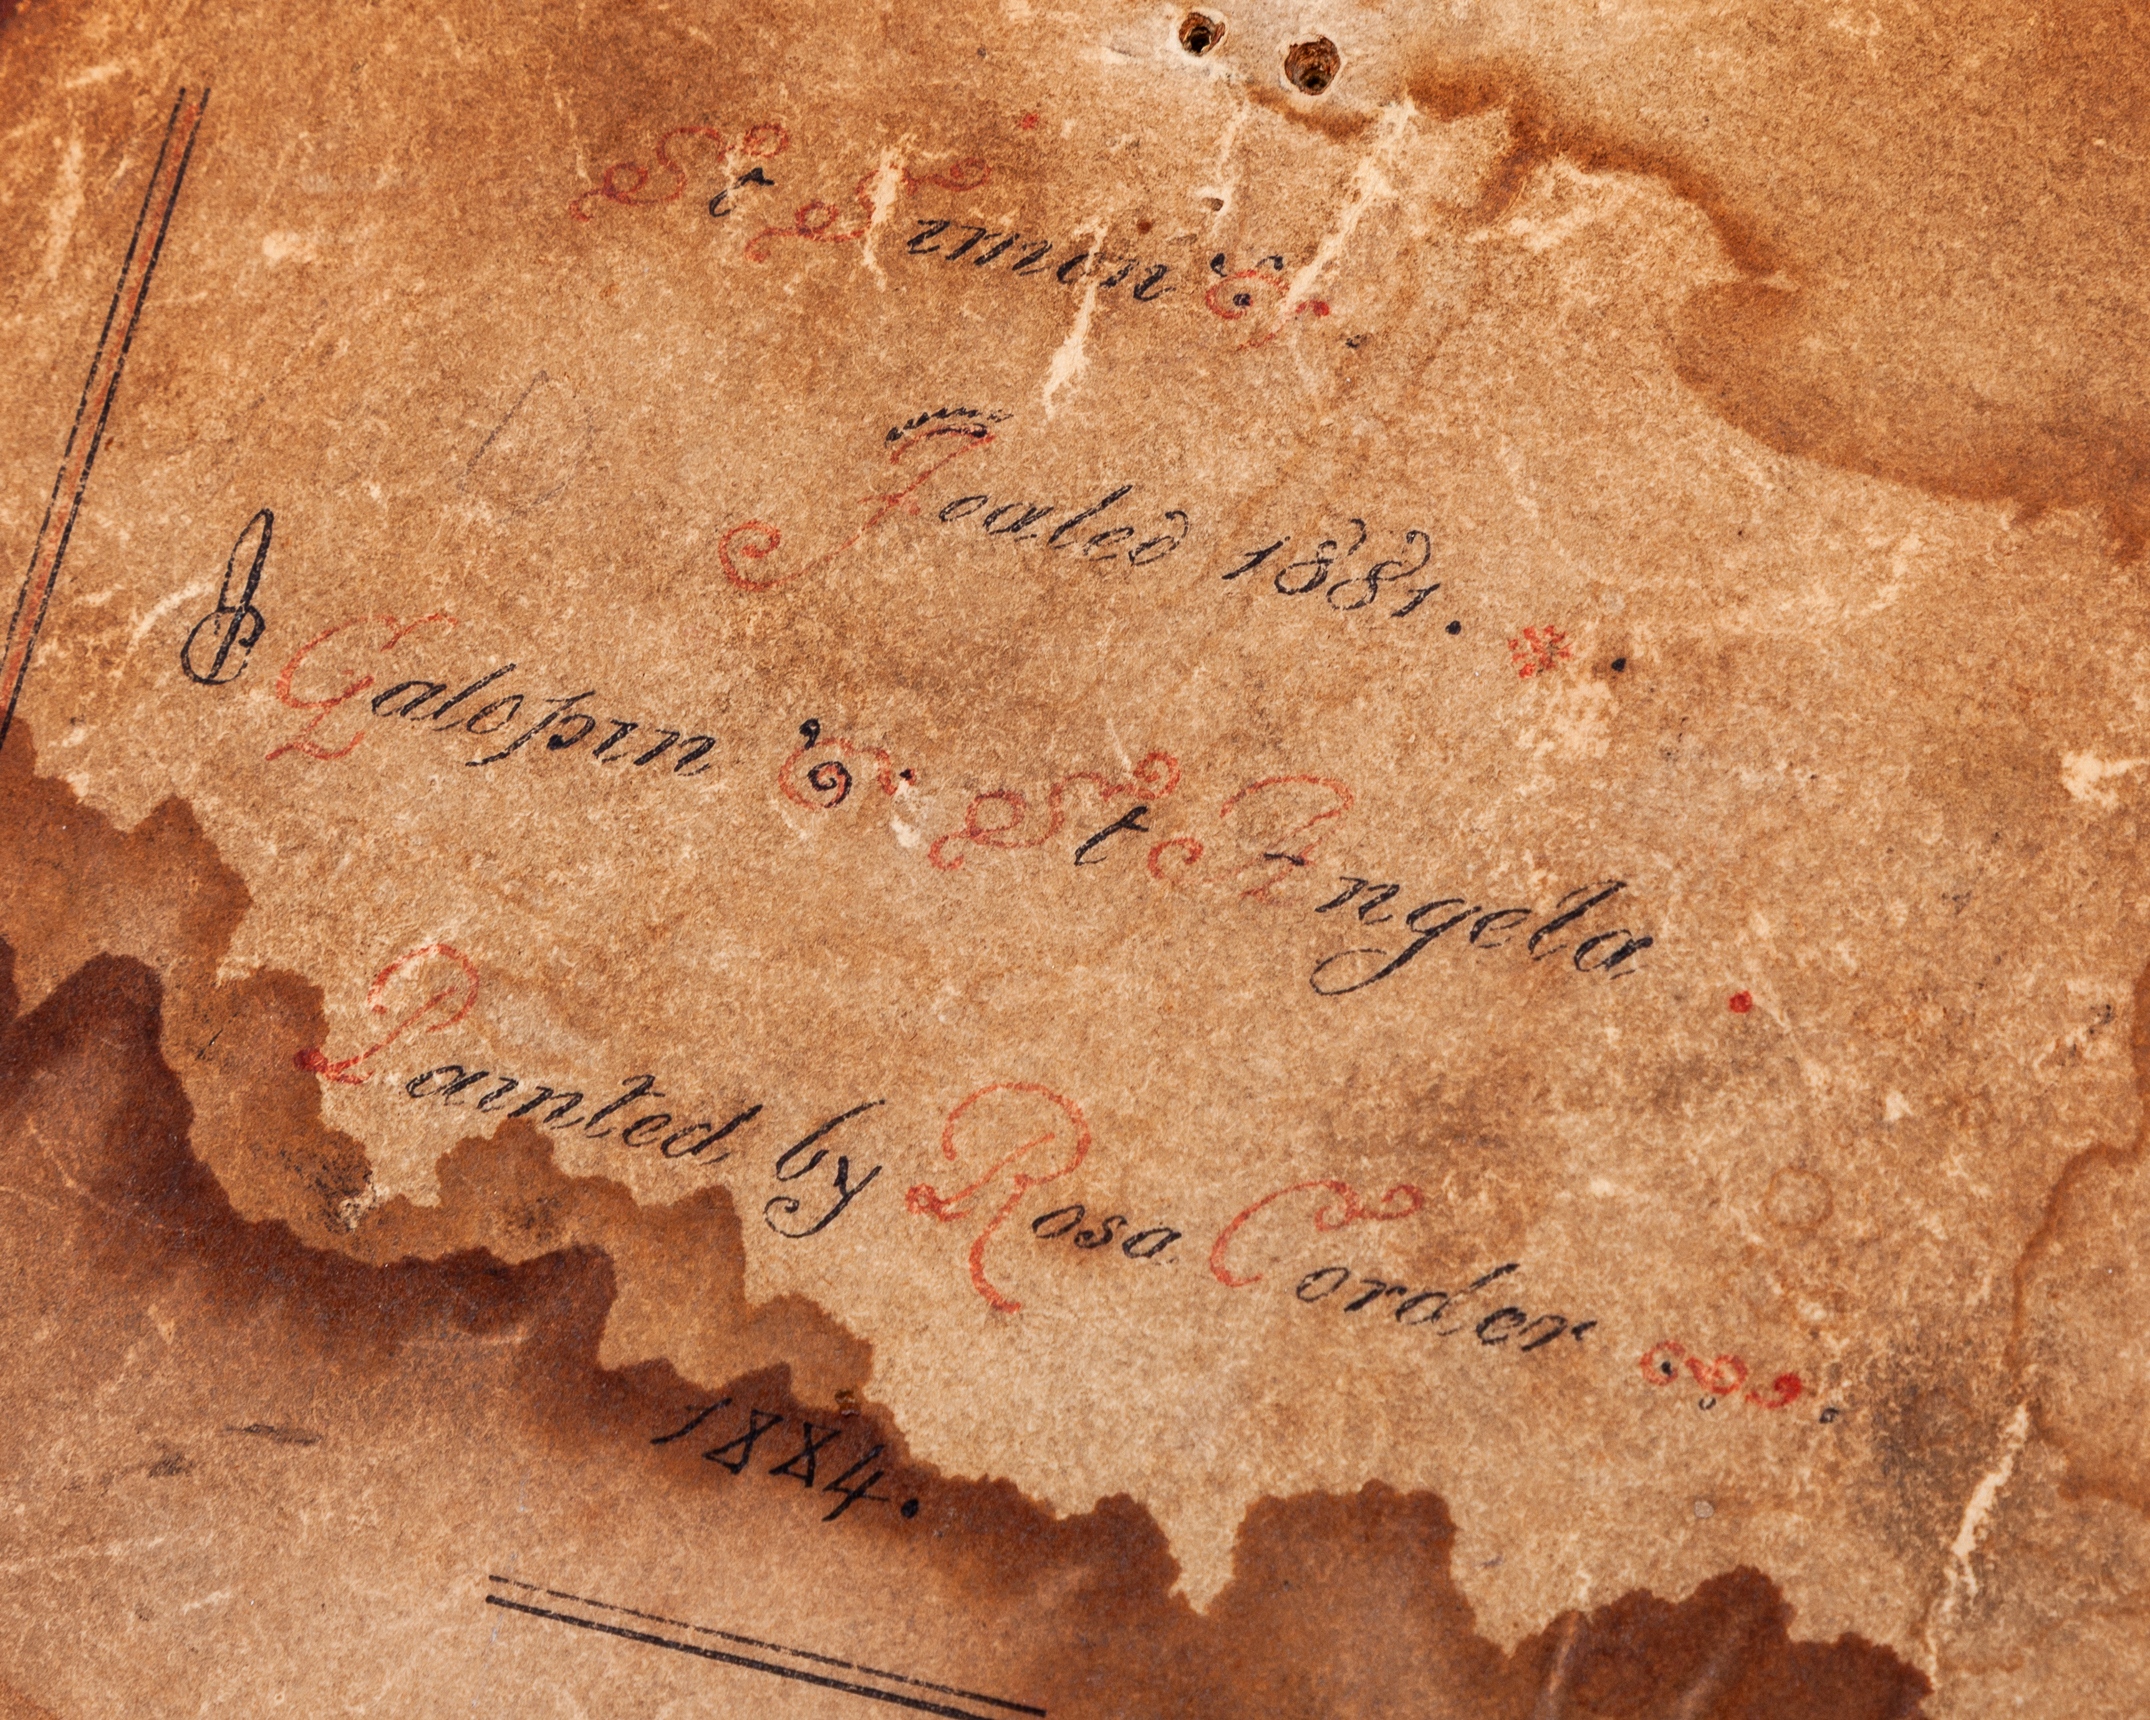 St Simon &.
Foaled 1881.
by Galopin & St Angela.
Painted by Rosa Corder.
1884.